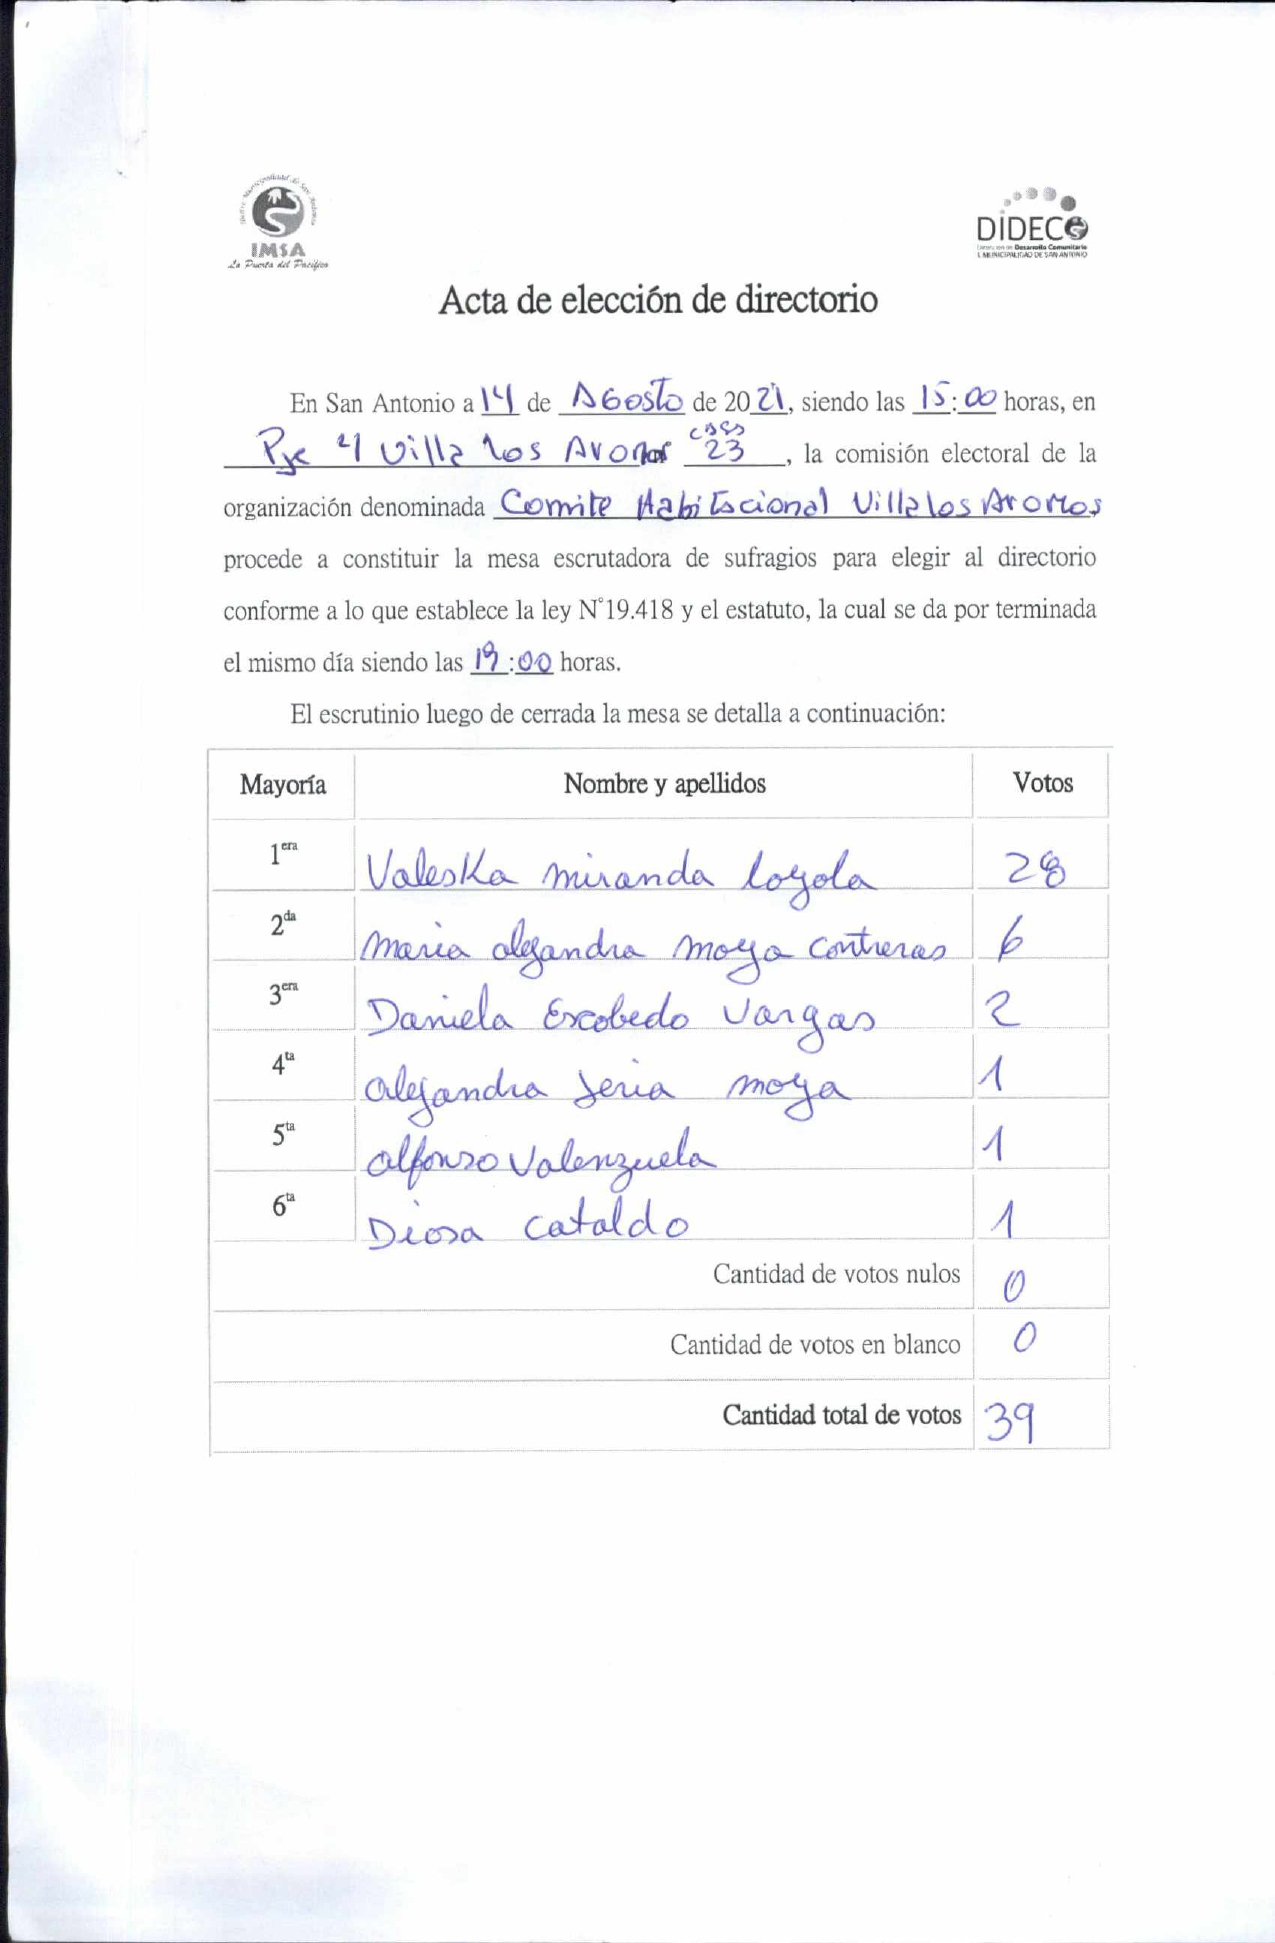 Ilustre Municipalidad de San Antonio
IMSA
La Puerta del Pacífico
DIDECO
Dirección de Desarrollo Comunitario
I. MUNICIPALIDAD DE SAN ANTONIO
Acta de elección de directorio
En San Antonio a 14 de Agosto de 2021, siendo las 15:00 horas, en
Pje 4 Villa los Aromos casa 23, la comisión electoral de la
organización denominada Comite Habitacional Villa los Aromos
procede a constituir la mesa escrutadora de sufragios para elegir al directorio
conforme a lo que establece la ley N°19.418 y el estatuto, la cual se da por terminada
el mismo día siendo las 19:00 horas.
El escrutinio luego de cerrada la mesa se detalla a continuación:
Mayoría Nombre y apellidos Votos
1era Valeska miranda loyola 28
2da Maria alejandra moya contreras 6
3era Daniela Escobedo Vargas 2
4ta alejandra Jeria moya 1
5ta alfonso Valenzuela 1
6ta Diosa Cataldo 1
Cantidad de votos nulos 0
Cantidad de votos en blanco 0
Cantidad total de votos 39